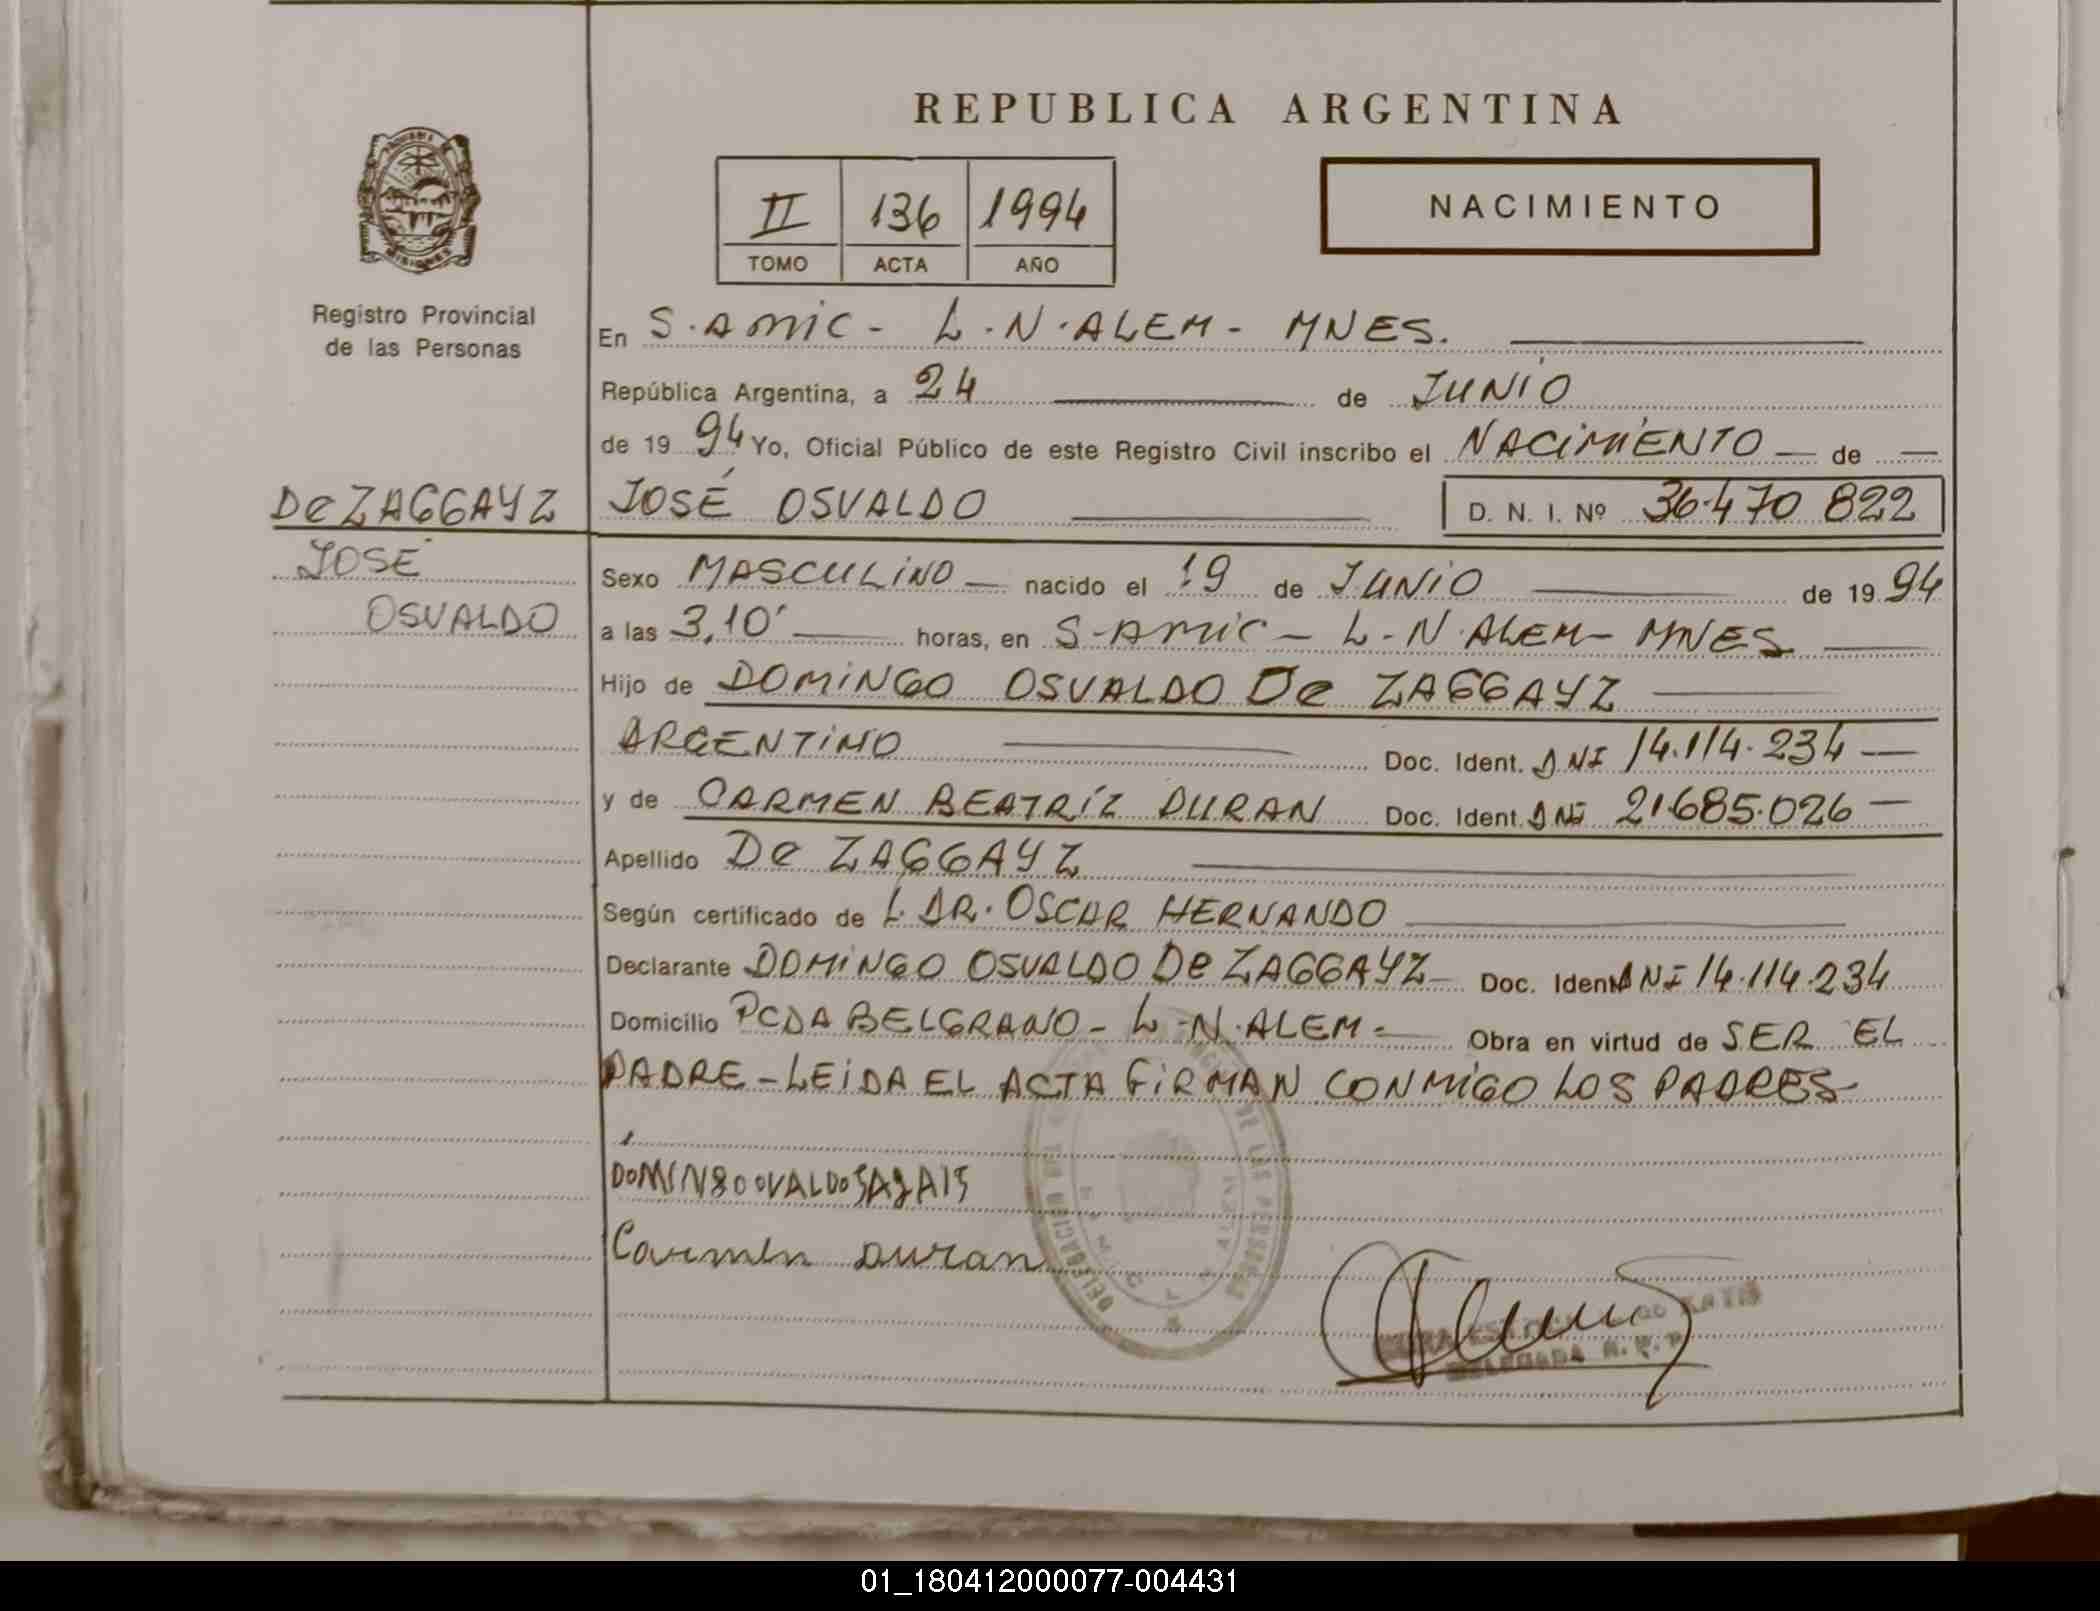 REPUBLICA ARGENTINA
II 136 1994
TOMO ACTA AÑO
NACIMIENTO
MISIONES
Registro Provincial
de las Personas
En S. AMIC - L. N. ALEM - MNES.
República Argentina, a 24 de JUNIO
de 19 94 Yo, Oficial Público de este Registro Civil inscribo el NACIMIENTO — de —
De ZAGGAYZ JOSÉ OSVALDO D. N. I. Nº 36.470 822
JOSÉ
OSVALDO
Sexo MASCULINO — nacido el 19 de JUNIO de 19 94
a las 3,10' horas, en S-AMIC - L-N. ALEM - MNES
Hijo de DOMINGO OSVALDO De ZAGGAYZ
ARGENTINO Doc. Ident. DNI 14.114.234 —
y de CARMEN BEATRÍZ DURAN Doc. Ident. DNI 21.685.026 —
Apellido De ZAGGAYZ
Según certificado de L. DR. OSCAR HERNANDO
Declarante DOMINGO OSVALDO De ZAGGAYZ - Doc. Ident. DNI 14.114.234
Domicilio PCDA BELGRANO - L-N. ALEM - Obra en virtud de SER EL
PADRE - LEIDA EL ACTA FIRMAN CONMIGO LOS PADRES
DOMIN8OOVALDOSAgAIS
Carmen Duran
DE LAS PERSONAS
DELEGADA R. P. P.
01_180412000077-004431